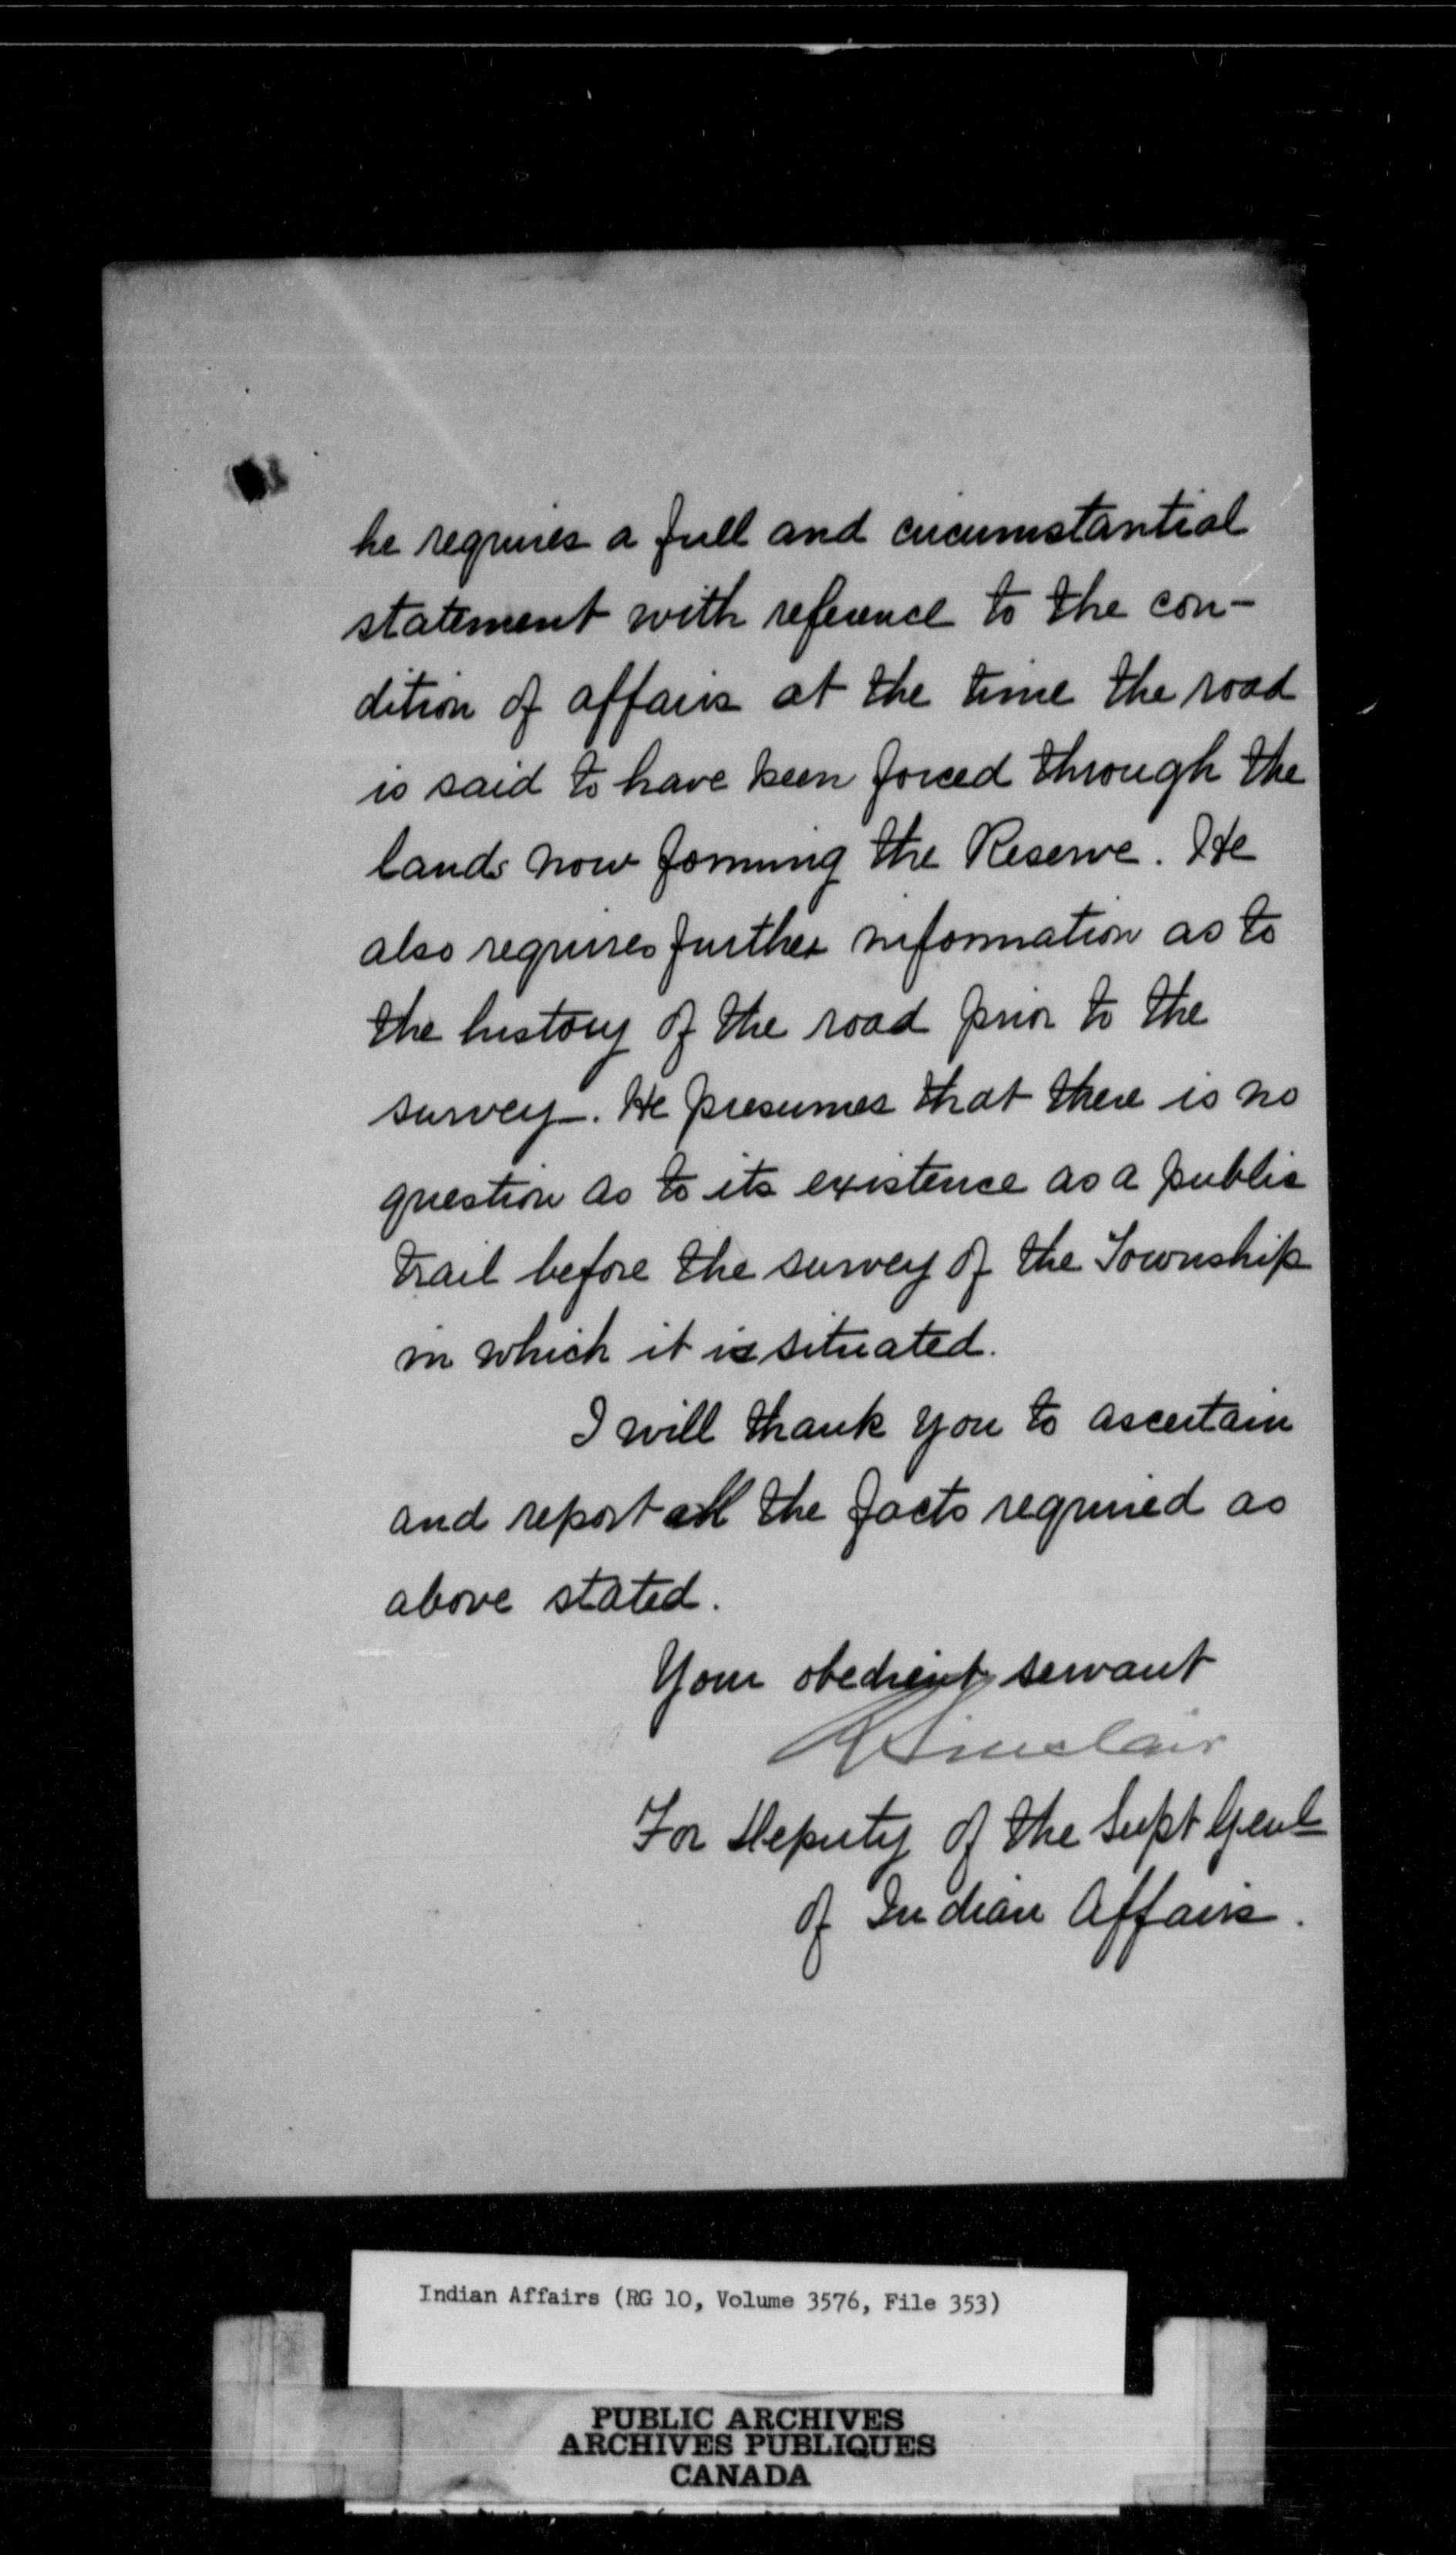 he requires a full and circumstantial
statement with reference to the con-
dition of affairs at the time the road
is said to have been forced through the
lands now forming the Reserve. He
also requires further information as to
the history of the road prior to the
survey. He presumes that there is no
question as to its existence as a public
trail before the survey of the Township
in which it is situated.
I will thank you to ascertain
and report all the facts required as
above stated.
Your obedient servant
R Sinclair
For Deputy of the Supt Genl
of Indian Affairs.
Indian Affairs (RG 10, Volume 3576, File 353)
PUBLIC ARCHIVES
ARCHIVES PUBLIQUES
CANADA